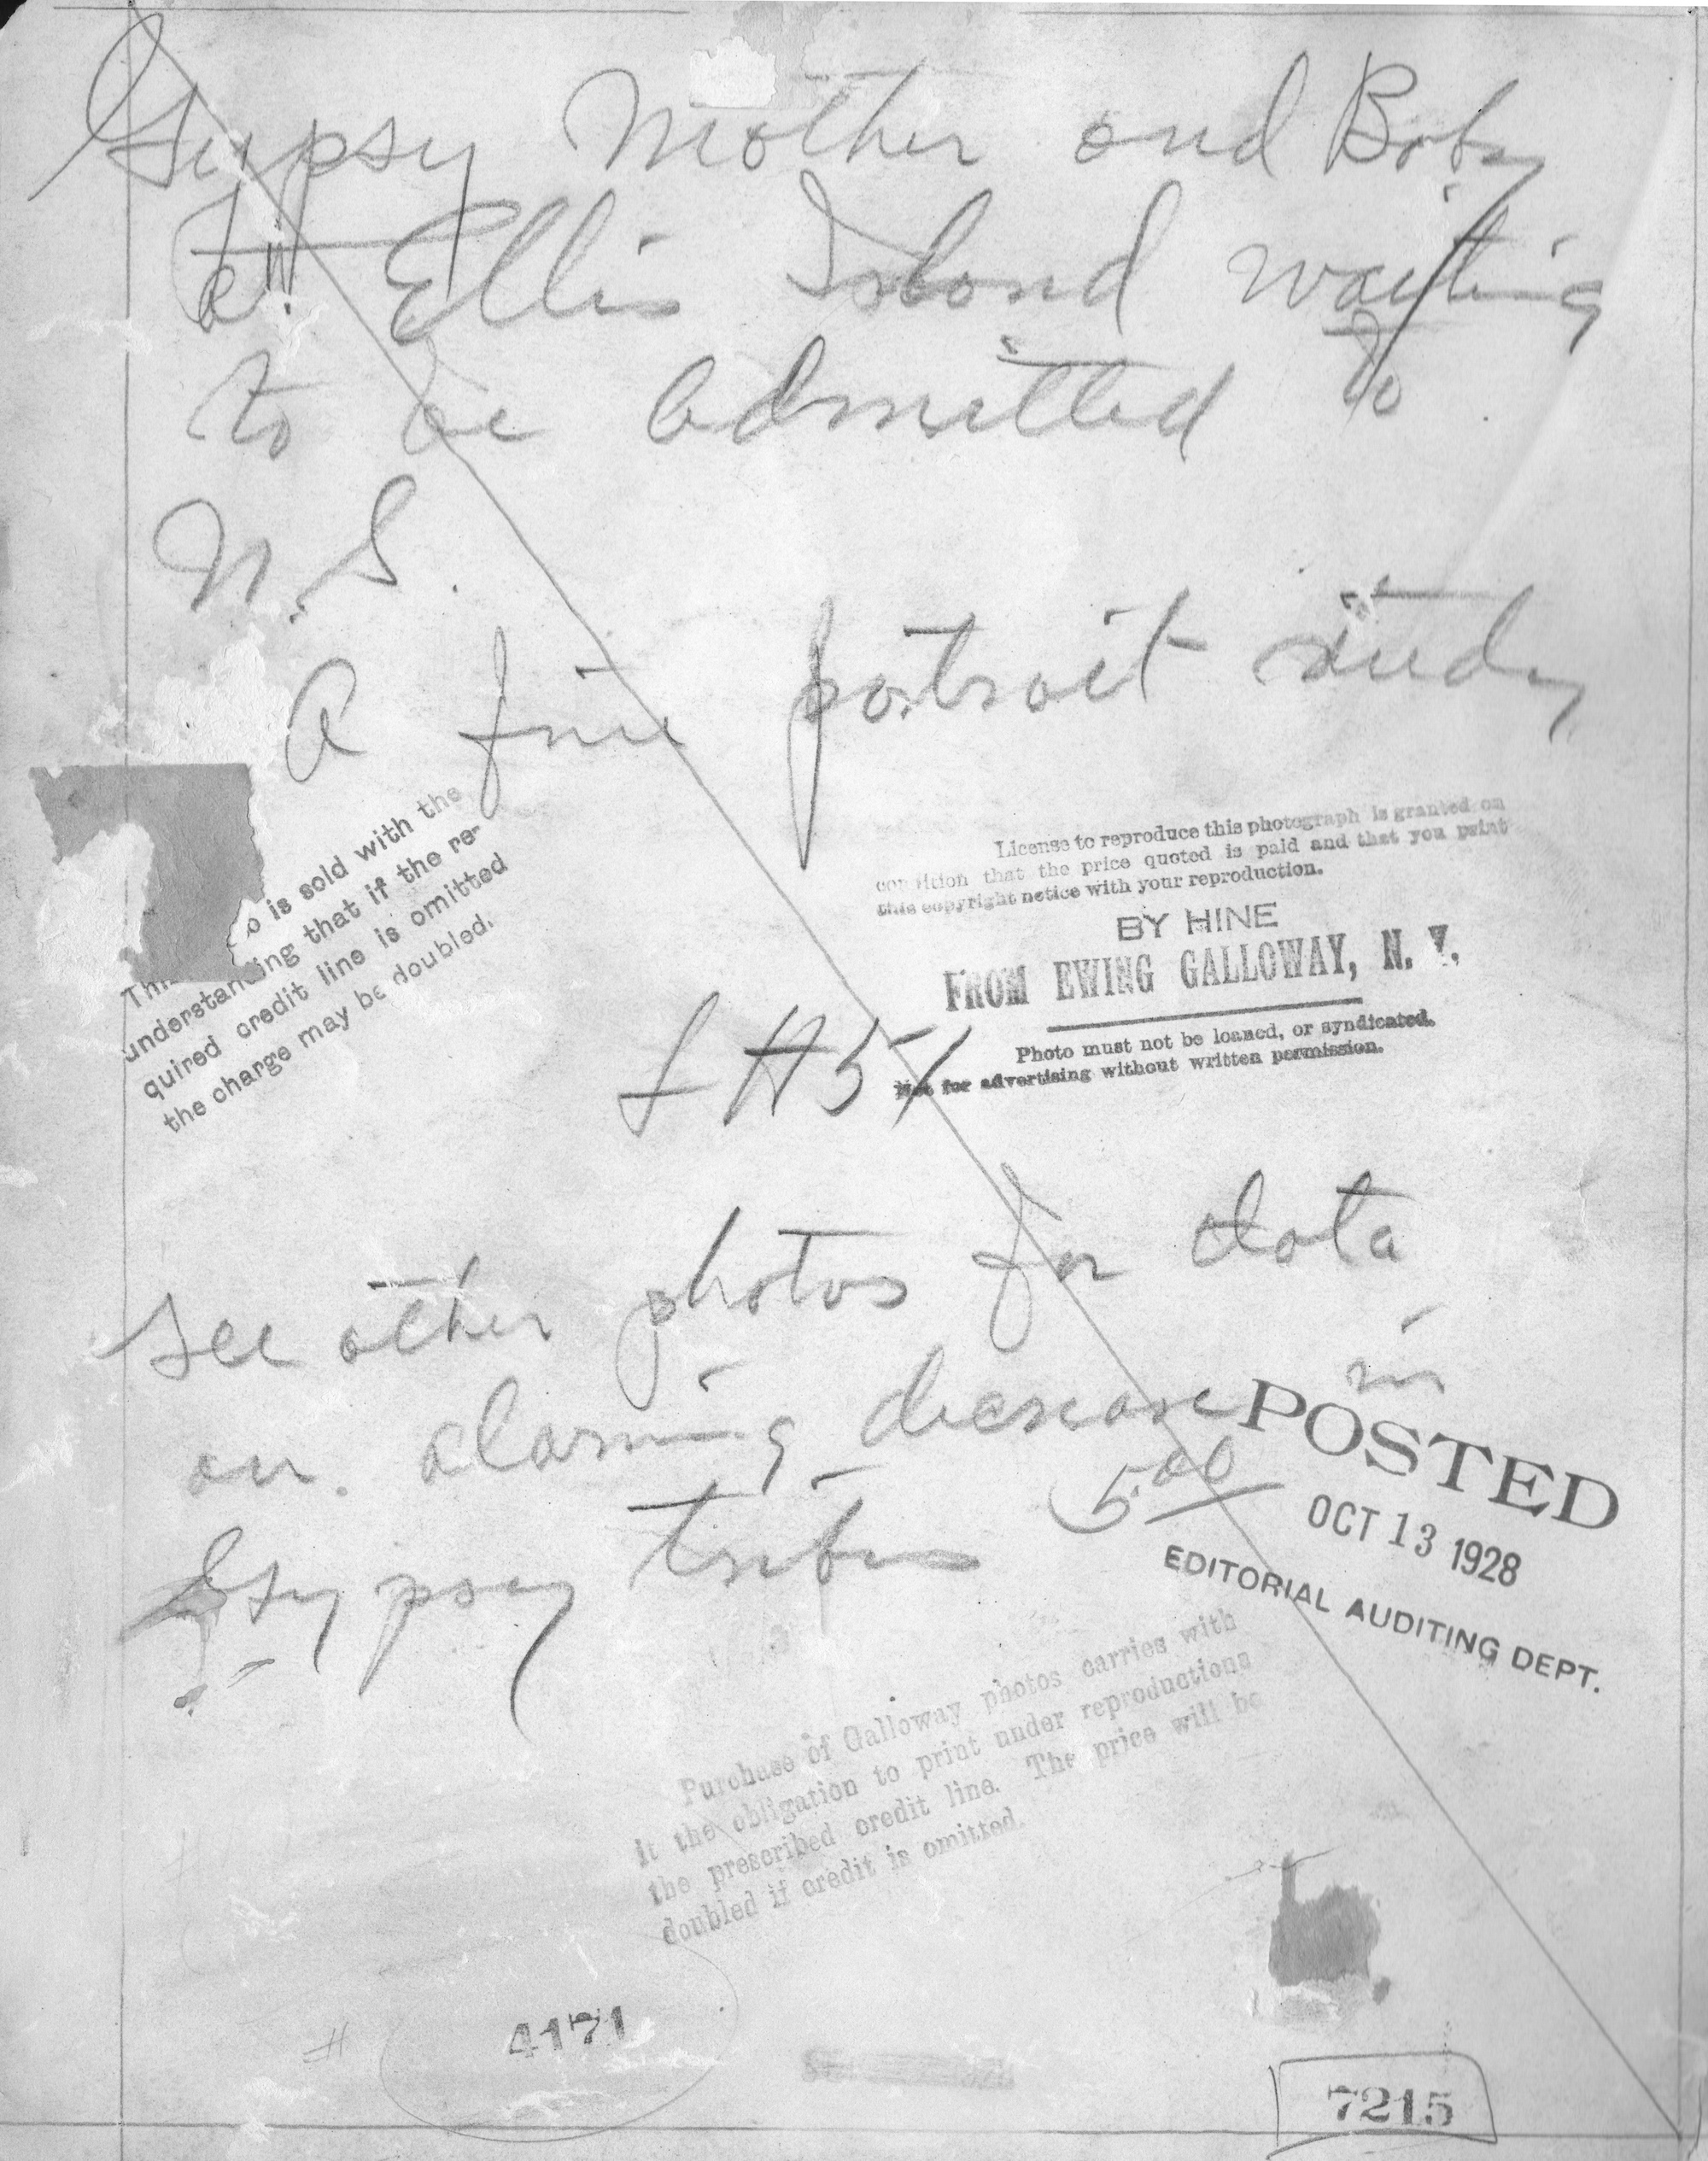 Gypsy Mother and Baby
at Ellis Island waiting
to be admitted to
U.S.
A fine portrait study
is sold with the
understanding that if the re-
quired credit line is omitted
the charge may be doubled.
License to reproduce this photograph is granted on
condition that the price quoted is paid and that you print
this copyright notice with your reproduction.
BY HINE
FROM EWING GALLOWAY, N. Y.
Photo must not be loaned, or syndicated.
Not for advertising without written permission.
H 51
see other photos for data
on alarming decrease in
Gypsy tribes
5.00
POSTED
OCT 13 1928
EDITORIAL AUDITING DEPT.
Purchase of Galloway photos carries with
it the obligation to print under reproductions
the prescribed credit line. The price will be
doubled if credit is omitted.
# 4171
7215